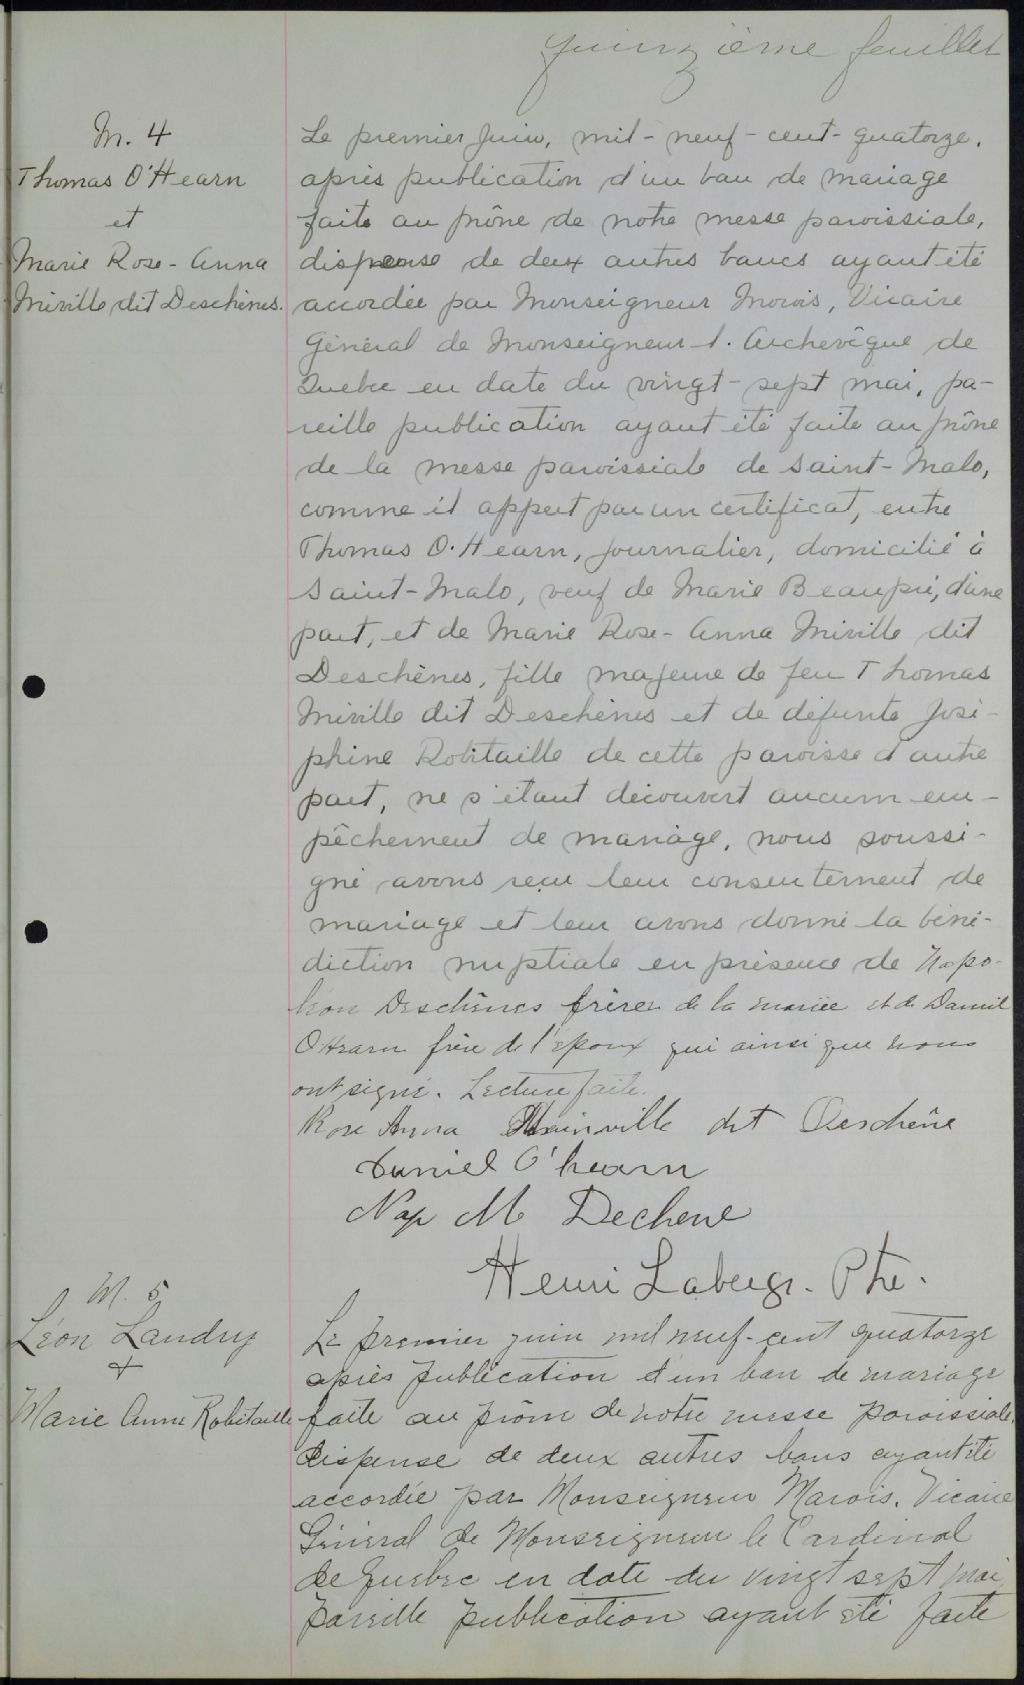 quinzième feuillet
M. 4
Thomas O'Hearn
et
Marie Rose-Anna
Miville dit Deschènes.
Le premier juin, mil-neuf-cent-quatorze,
après publication d'un ban de mariage
faite au prône de notre messe paroissiale,
dispense de deux autres bancs ayant été
accordée par Monseigneur Marois, Vicaire
Général de Monseigneur l. Archevêque de
Québec en date du vingt-sept mai, pa-
reille publication ayant été faite au prône
de la messe paroissiale de Saint-Malo,
comme il appert par un certificat, entre
Thomas O'Hearn, journalier, domicilié à
Saint-Malo, veuf de Marie Beaupré, d'une
part, et de Marie Rose-Anna Miville dit
Deschènes, fille majeure de feu Thomas
Miville dit Deschènes et de défunte José-
phine Robitaille de cette paroisse d'autre
part, ne s'étant découvert aucum em-
pêchement de mariage, nous soussi-
gné avons reçu leur consentement de
mariage et leur avons donné la béné-
diction nuptiale en présence de Napo-
léon Deschênes frère de la mariée et de Daniel
O'Hearn frère de l'époux qui ainsi que nous
ont signé. Lecture faite.
Rose Anna Mainville dit Deschêne
Daniel O'hearn
Nap M Dechene
Henri Laberge. Ptre.
M. 5
Léon Landry
+
Marie Anne Robitaille
Le premier juin mil neuf-cent quatorze
après publication d'un ban de mariage
faite au prône de notre messe paroissiale,
dispense de deux autres bans ayant été
accordée par Monseigneur Marois. Vicaire
Général de Monseigneur le Cardinal
de Québec en date du vingt sept mai,
pareille publication ayant été faite